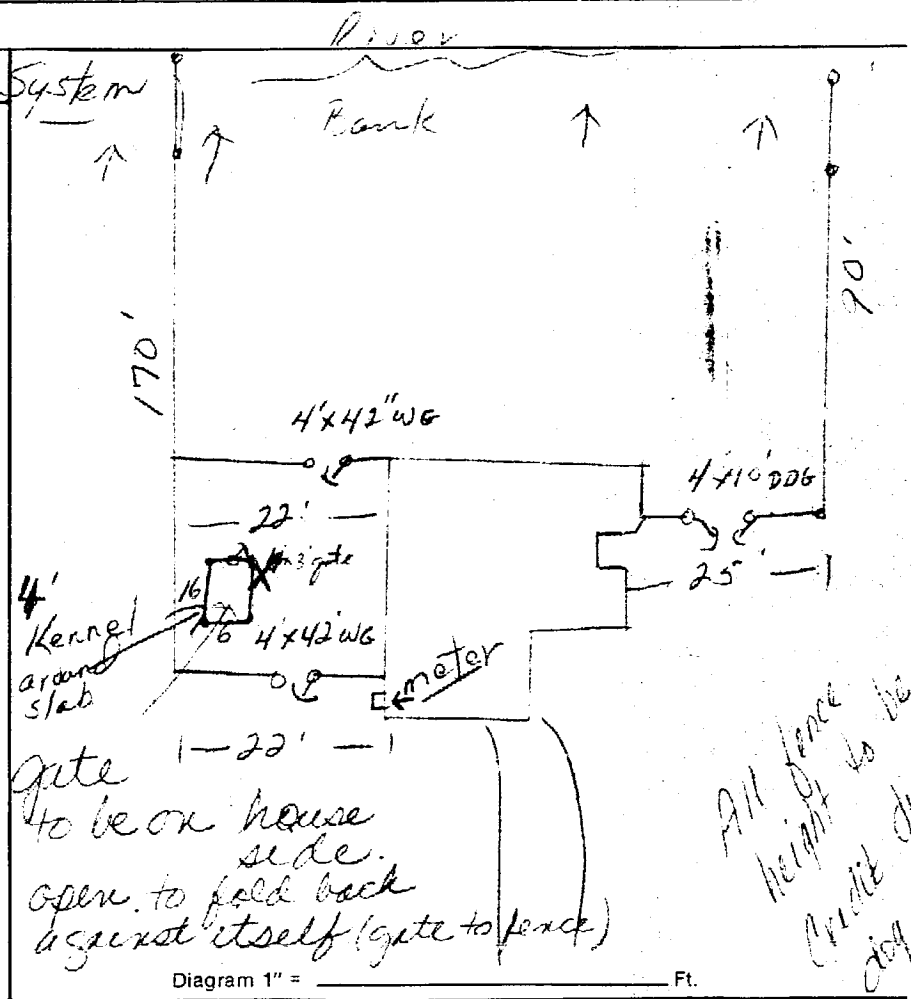 River
System
Bank
170'
90'
4'x42" WG
4'x10' DDG
22'
gate
25'
4'
16
6
Kennel
around
slab
4'x42" WG
meter
22'
gate
to be on house
side.
open to fold back
against itself (gate to fence)
All fence
height to be
Credit
dog
Diagram 1" = ____ Ft.